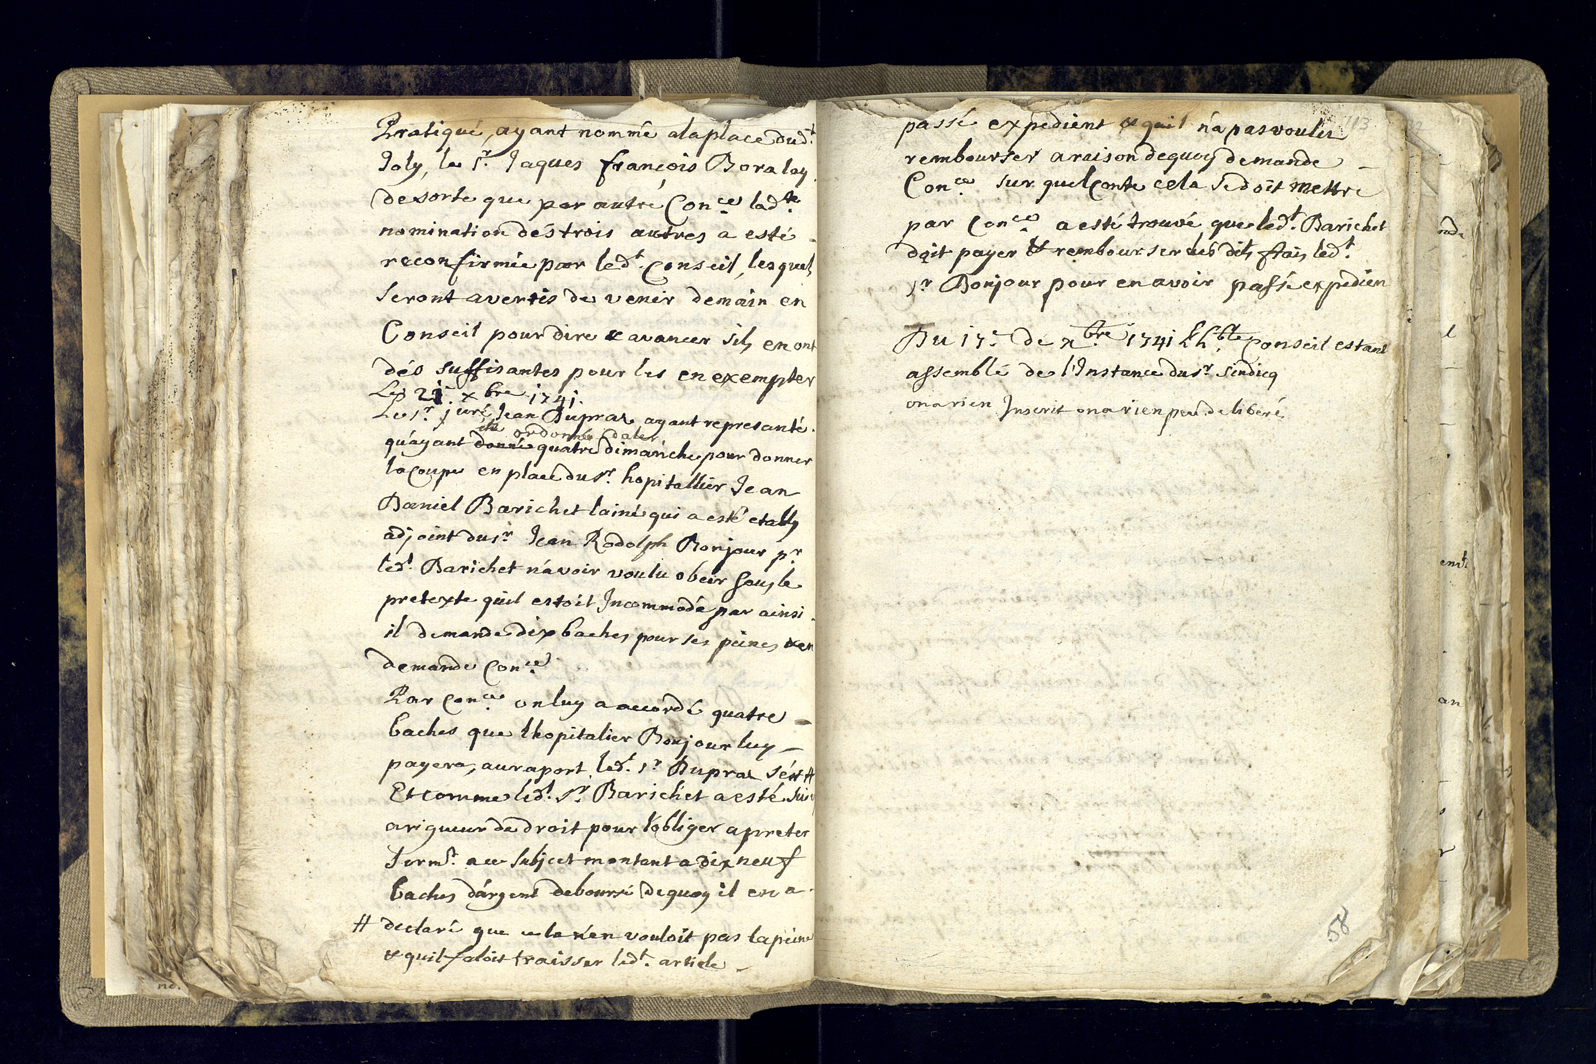 Pratiqué, ayant nommé a la place dud.t
Joly, le Sr. Jaques françois Boralay
de sorte que par autre Con.ce lad.te
nomination dés trois autres a esté
reconfirmée par led.t Conseil, lesquels
seront avertis de venir demain en
Conseil pour dire & avancer s'ils en ont
dés suffisantes pour les en exempter
Le 21. xbre 1741.
Le sr. juré Jean Dupraz ayant represanté
été ordonné daler
qu'ayant donné quatre dimanche pour donner
la Coupe en place du sr. hopitallier Jean
Daniel Barichet lainé qui a esté etably
adjoint du sr. Jean Rodolph Bonjour pr
led.t Barichet n'avoir voulu obeir sous le
pretexte quil estoit Incommodé par ainsi
il demande dix baches pour ses peines & en
demande Con.ce
Par Con.ce on luy a accordé quatre
baches que lhopitalier Bonjour luy
payera, au raport led.t sr Dupraz #
Et comme led.t Sr. Barichet a esté
a rigueur de droit pour l'obliger a preter
serm.t a ce subjcet montant a dix neuf
baches d'argent deboursé de quoy il en a
# declaré que cela n'en vouloit pas la peine
& quil faloit traisser led.t article
passé expedient & quil n'a pas voulu
rembourser a raison de quoy demande
Con.ce sur quel Conte cela se doit mettre
par Con.ce a esté trouvé que led.t Barichet
doit payer & rembourser les dits frais led.t
sr Bonjour pour en avoir passé expedien
Du 17e de xbre 1741 Conseil estant
assemblé de l'Instance du sr. Sindicq
on a rien Inscrit on a rien peu deliberé
58